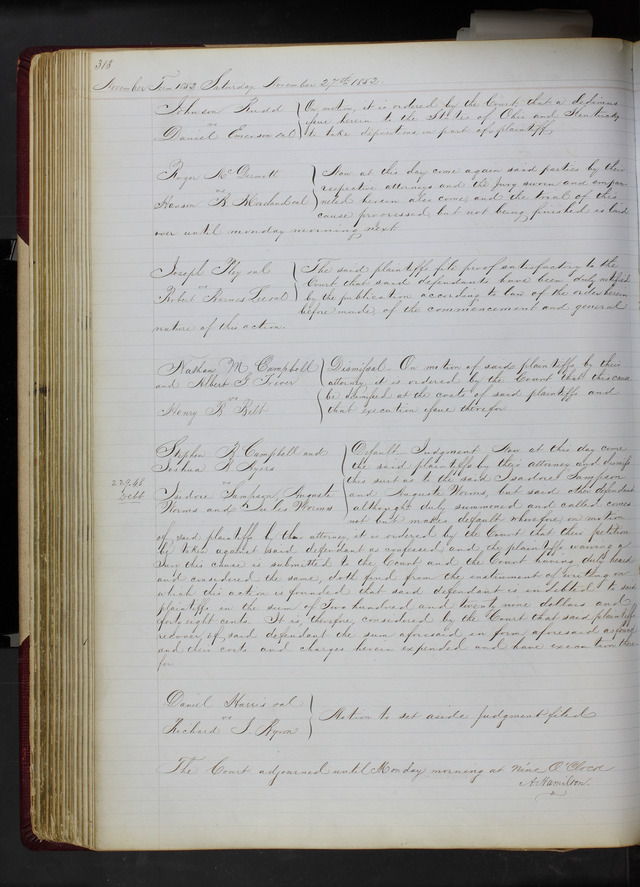 318
November Term 1852 Saturday November 27th 1852.
Johnson Rudd } On motion, it is ordered by the Court that a dedimus
vs } issue herein to the States of Ohio and Kentucky
Daniel Emerson et al } to take depositions in part of plaintiff.
Roger McDermott } Now at this day come again said parties by their
vs } respective attorneys and the Jury sworn and impan-
Hanson B. et al } neled herein also come, and the trial of this
cause progressed but not being finished is laid
over until monday morning next.
Joseph et al } The said plaintiffs file proof satisfactory to the
vs } Court that said defendants have been duly notified
Robert Barnes et al } by the publication according to law of the order herein
before made, of the commencement and general
nature of this action.
Nathan M. Campbell } Dismissal. On motion of said plaintiffs by their
and Albert G. } attorney, it is ordered by the Court that this cause
vs } be dismissed at the costs of said plaintiffs and
Henry B. Belt } that execution issue therefor
Stephen R Campbell and } Default Judgment. Now at this day come
Joshua R Ayers } the said plaintiffs by their attorney and dismiss
229.48 vs } this suit as to the said Isadore Sampson
Debt Isidore Sampson, Auguste } and Auguste Worms, but said defendant
Worms and Jules Worms } althought duly summoned and called comes
not but makes default wherefore on motion
of said plaintiffs by their attorney, it is ordered by the Court that their petition
be taken against said defendant as confessed, and the plaintiffs waiving a
Jury this cause is submitted to the Court and the Court having duly heard
and considered the same, doth find from the instrument of writing on
which this action is founded that said defendant is indebted to said
plaintiffs in the sum of Two hundred and twenty nine dollars and
forty eight cents. It is, therefore, considered by the Court that said plaintiffs
recover of said defendant the sum aforesaid in form aforesaid as found
and their costs and charges herein expended and have execution there
for
Daniel Harris et al }
vs } Motion to set aside judgment filed
Richard J. }
The Court adjourned until Monday morning at Nine O'Clock
A. Hamilton.